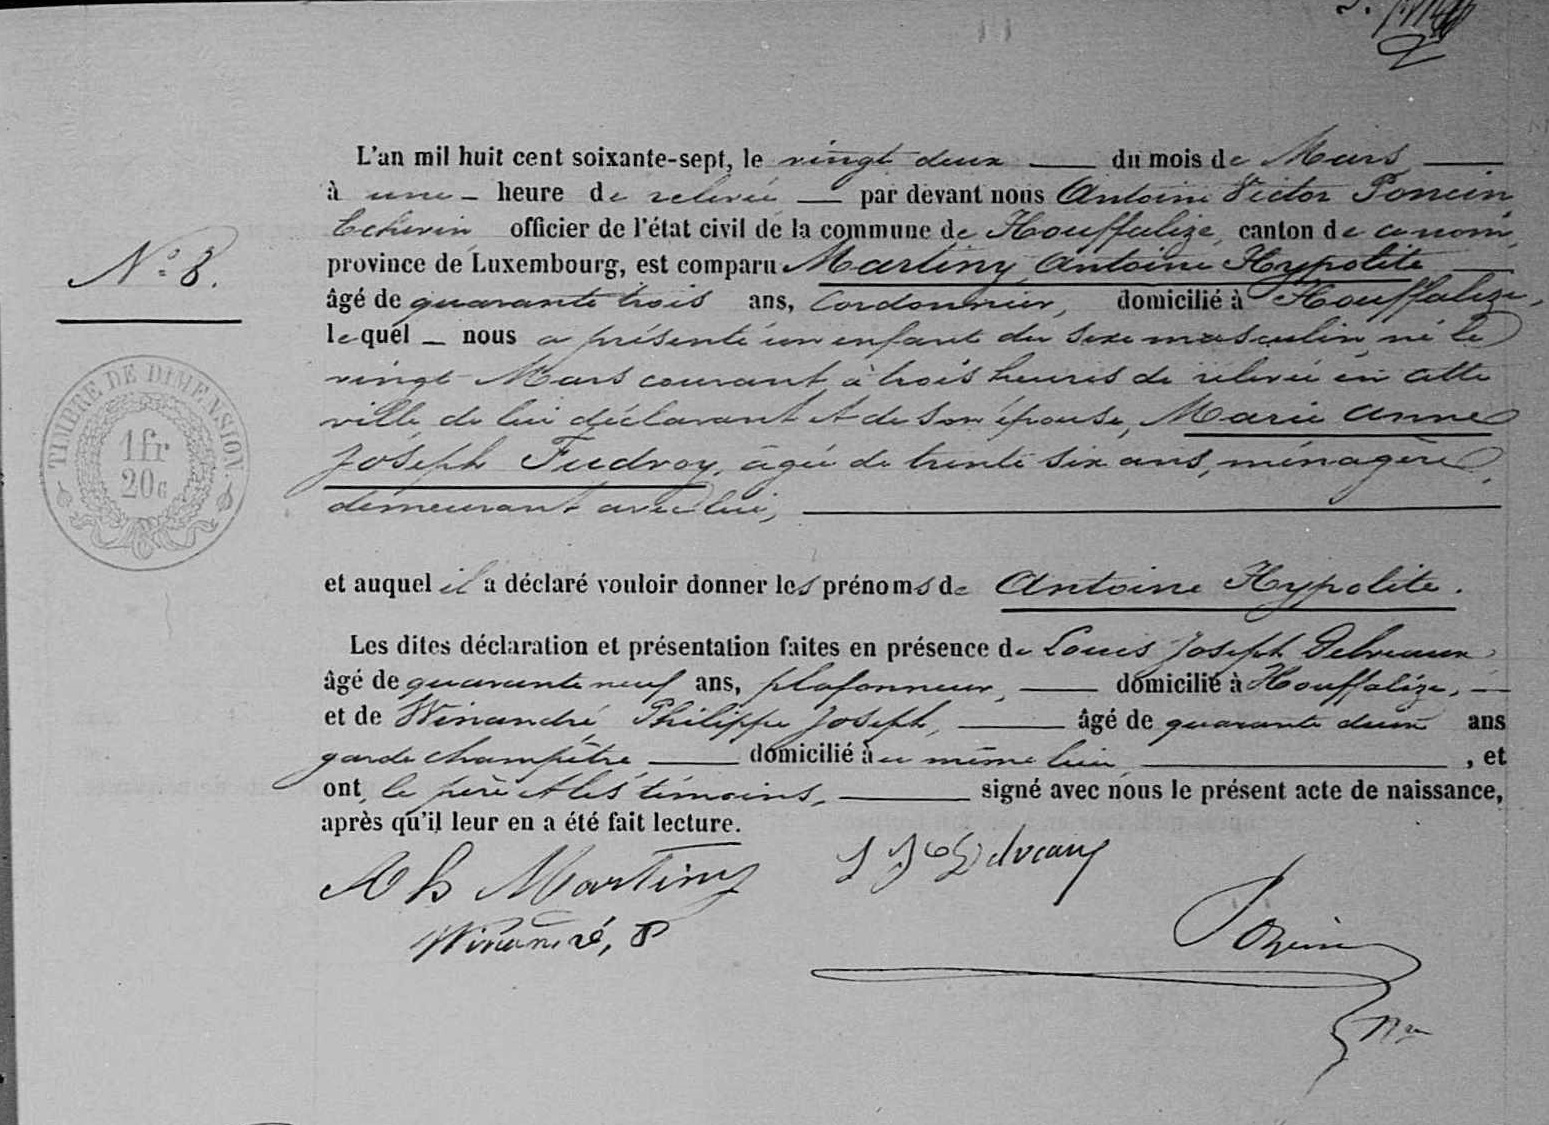 L'an mil huit cent soixante-sept, le vingt deux du mois de Mars
à une heure de relevée par devant nous Antoine Victor Poncin,
Echevin officier de l'état civil de la commune de Houffalize, canton de ce nom,
province de Luxembourg, est comparu Martiny, Antoine Hypolite
N.º 8.
âgé de quarante trois ans, Cordonnier, domicilié à Houffalize,
lequel nous a présenté un enfant du sexe masculin, né le
vingt Mars courant à trois heures de relevée en cette
ville, de lui déclarant et de son épouse, Marie Anne
Joseph Fudvoy, âgée de trente six ans, ménagère,
demeurant avec lui,
TIMBRE DE DIMENSION.
1 fr
20 c
et auquel il a déclaré vouloir donner les prénoms de Antoine Hypolite.
Les dites déclaration et présentation faites en présence de Louis Joseph Delveaux
âgé de quarante neuf ans, plafonneur, domicilié à Houffalize,
et de Winandré, Philippe Joseph, âgé de quarante deux ans
garde champêtre domicilié au même lieu, , et
ont, le père et les témoins, signé avec nous le présent acte de naissance,
après qu'il leur en a été fait lecture.
A h Martiny
L J Delveaux
Winandré, P
Poncin